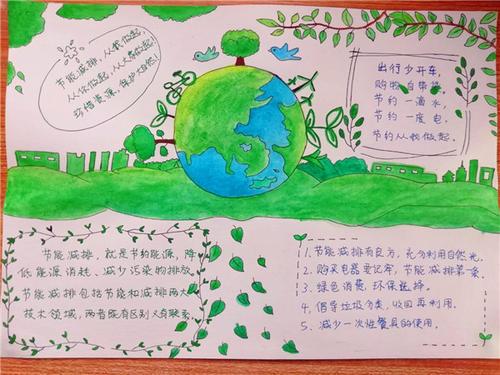 节能减排，从我做起，
从你做起，从大家做起，
珍惜资源，保护大自然！
出行少开车，
购物自带袋，
节约一滴水，
节约一度电，
节约从我做起。
节能减排，就是节约能源、降
低能源消耗、减少污染的排放
节能减排包括节能和减排两大
技术领域，两者既有区别又有联系
1. 节能减排有良方，充分利用自然光。
2. 购买电器要记牢，节能减排第一条。
3. 绿色消费，环保选择。
4. 倡导垃圾分类，收回再利用。
5、减少一次性餐具的使用。